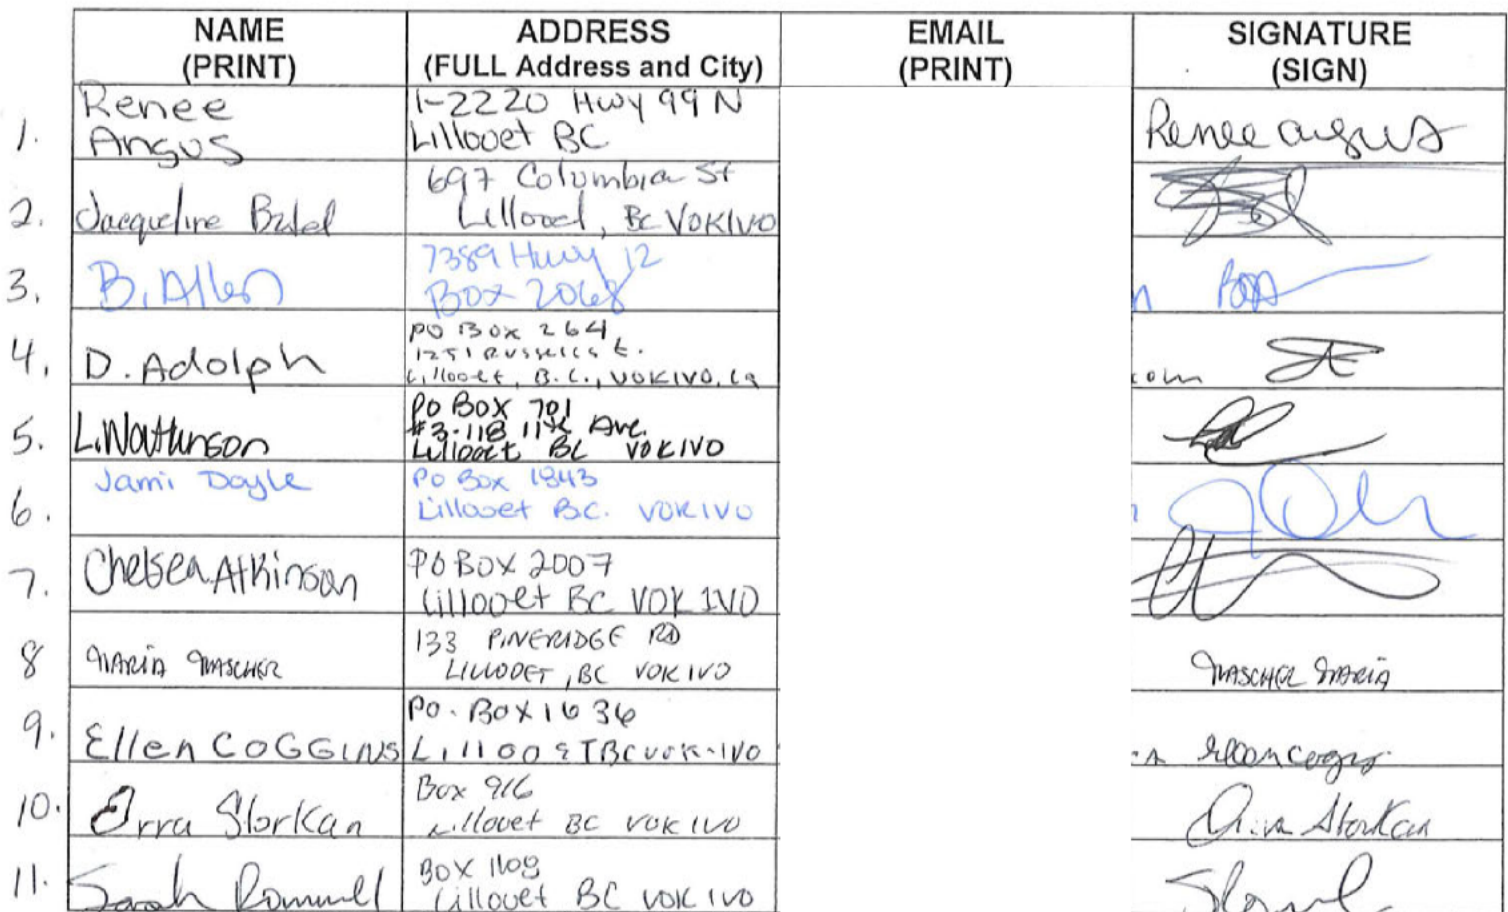 NAME (PRINT) ADDRESS (FULL Address and City) EMAIL (PRINT) SIGNATURE (SIGN)
1. Renee Angus 1-2220 Hwy 99 N Lillooet BC Renee angus
2. Jacqueline 697 Columbia St Lillooet, BC V0K1V0
3. B. Allen 7389 Hwy 12 Box 2068
4. D. Adolph PO Box 264, Lillooet, B.C., V0K1V0, com
5. PO Box 701 #3-118 11th Ave. Lillooet BC V0K1V0
6. Jami Doyle PO Box 1843 Lillooet BC. V0K1V0
7. Chelsea Atkinson PO Box 2007 Lillooet BC V0K 1V0
8 MARIA MASCHER 133 PINERIDGE RD LILLOOET, BC V0K1V0 MASCHER MARIA
9. Ellen COGGINS PO. BOX 1636 LillooET BC V0K-1V0
10. Storkan Box 916 Lillooet BC V0K1V0 Storkan
11. Sarah Box 1109 Lillooet BC V0K1V0